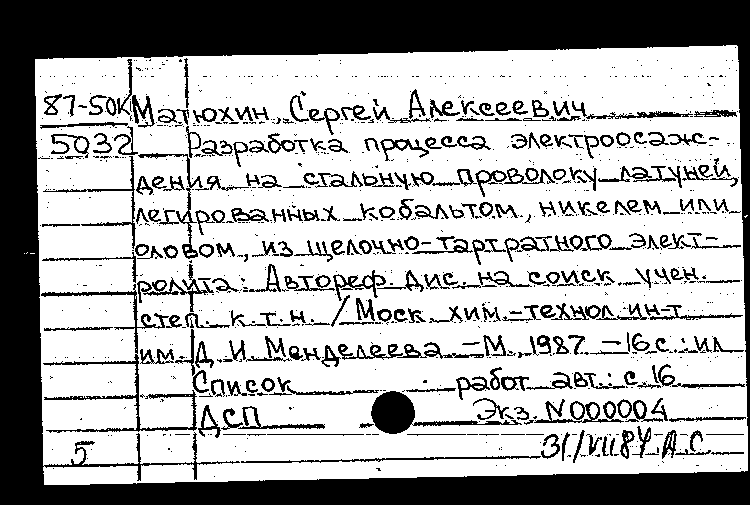 87-50К Матюхин, Сергей Алексеевич
5032 Разработка процесса электроосаж-
дения на стальную проволоку латуней,
легированных кобальтом, никелем или
оловом, из щелочно-тартратного элект-
ролита: Автореф. дис. на соиск. учен.
степ. к.т.н. / Моск. хим.-технол. ин-т
им. Д. И. Менделеева. -М., 1987. -16 с.: ил
Список работ авт.: с. 16
ДСП Экз. N000004
5 31/VII 87 А.С.